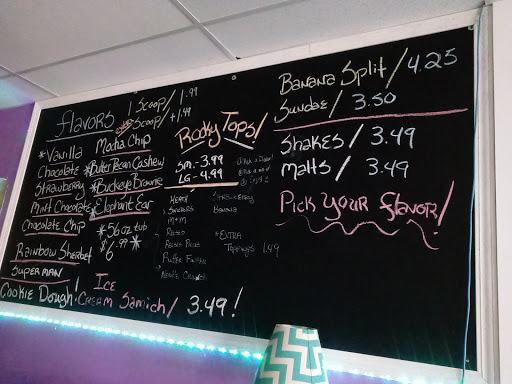 flavors
1 Scoop / 1.99
Scoop / +1.49
*Vanilla
Chocolate
Strawberry
Mint Chocolate
Chocolate Chip
Rainbow Sherbet
Superman
Cookie Dough!
Mocha Chip
*Butter Pecan Cashew
*Buckeye Brownie
*Elephant Ear
*56oz tub
$6.99*
Ice
Cream Samich / 3.49!
Rocky Tops!
Sm. - 3.99
LG - 4.99
Heath
Snickers
M+M
Oreo
Nerds
Strawberry
Banana
*Extra
Toppings 1.49
Banana Split / 4.25
Sundae / 3.50
Shakes / 3.49
Malts / 3.49
Pick Your flavor!